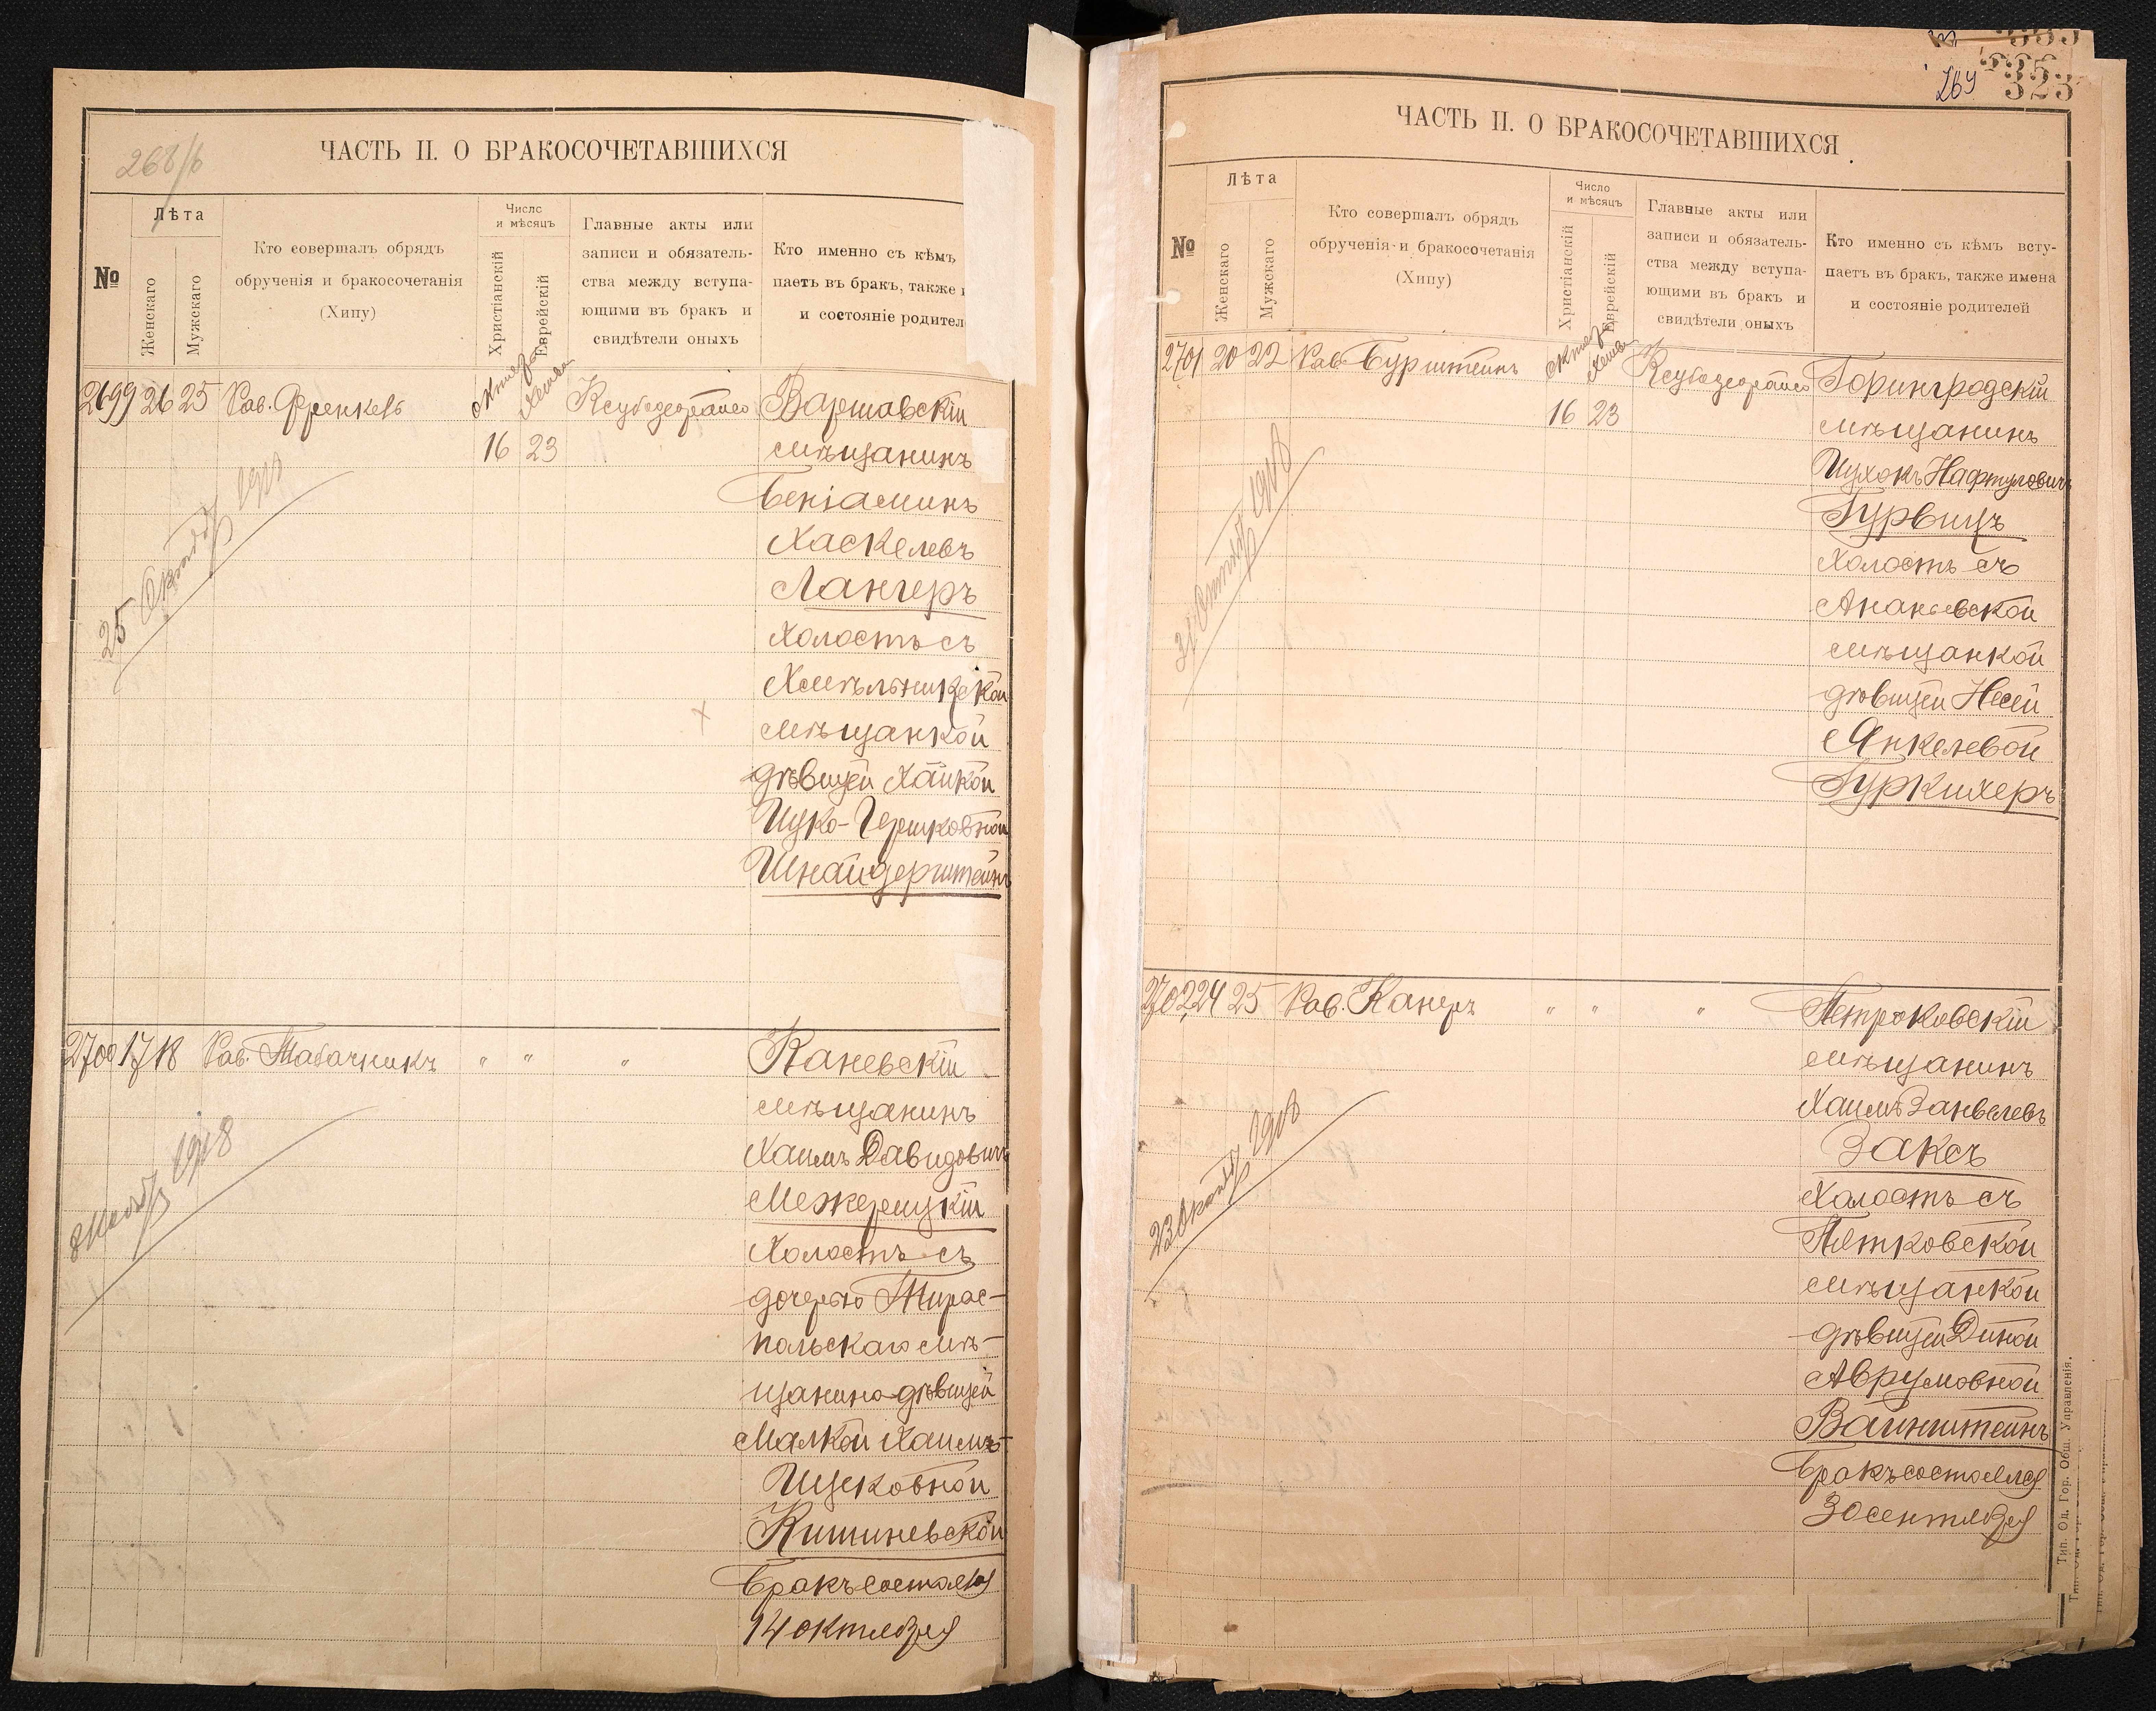 268/б
ЧАСТЬ II. О БРАКОСОЧЕТАВШИХСЯ
№
Лѣта
Женскаго
Мужскаго
Кто совершалъ обрядъ
обрученія и бракосочетанія
(Хипу)
Число
и мѣсяцъ
Христіанскій
Еврейскій
Главные акты или
записи и обязатель-
ства между вступа-
ющими въ бракъ и
свидѣтели оныхъ
Кто именно съ кѣмъ
паетъ въ бракъ, также
и состояніе родител
2699 26 25 Рав. Френкель
16 23
Варшавскій
мѣщанинъ
Беніаминъ
Хаскелевъ
Лангеръ
Холостъ съ
Хмѣльникской
мѣщанкой
дѣвицей Хайкой
Ицко-Гершковной
Шнайдерштейнъ
25 Октября 1918
2700 17 18 Рав. Табачникъ " " "
Каневскій
мѣщанинъ
Хаимъ Давидовичъ
Межерицкій
Холостъ съ
дочерью Тирас-
польскаго мѣ-
щанина дѣвицей
Малкой Хаимъ-
Ицековной
Кишиневской
Бракъ состоялся
14 октября
1918
323
269
ЧАСТЬ II. О БРАКОСОЧЕТАВШИХСЯ
№
Лѣта
Женскаго
Мужскаго
Кто совершалъ обрядъ
обрученія и бракосочетанія
(Хипу)
Число
и мѣсяцъ
Христіанскій
Еврейскій
Главные акты или
записи и обязатель-
ства между вступа-
ющими въ бракъ и
свидѣтели оныхъ
Кто именно съ кѣмъ всту-
паетъ въ бракъ, также имена
и состояніе родителей
2701 20 22 Рав. Бурштейнъ
16 23
Горингродскій
мѣщанинъ
Ицхокъ Нафтуловичъ
Гурвицъ
Холостъ съ
Ананьевской
мѣщанкой
дѣвицей Несей
Янкелевой
Гуркихеръ
1918
2702 24 25 Рав. Канеръ " " "
Петроковскій
мѣщанинъ
Хаимъ Занвелевъ
Заксъ
Холостъ съ
Пятковской
мѣщанкой
дѣвицей Диной
Аврумовной
Вайнштейнъ
Бракъ состоялся
30 сентября
23 Октября 1918
Тип. Од. Гор. Общ. Управленія.